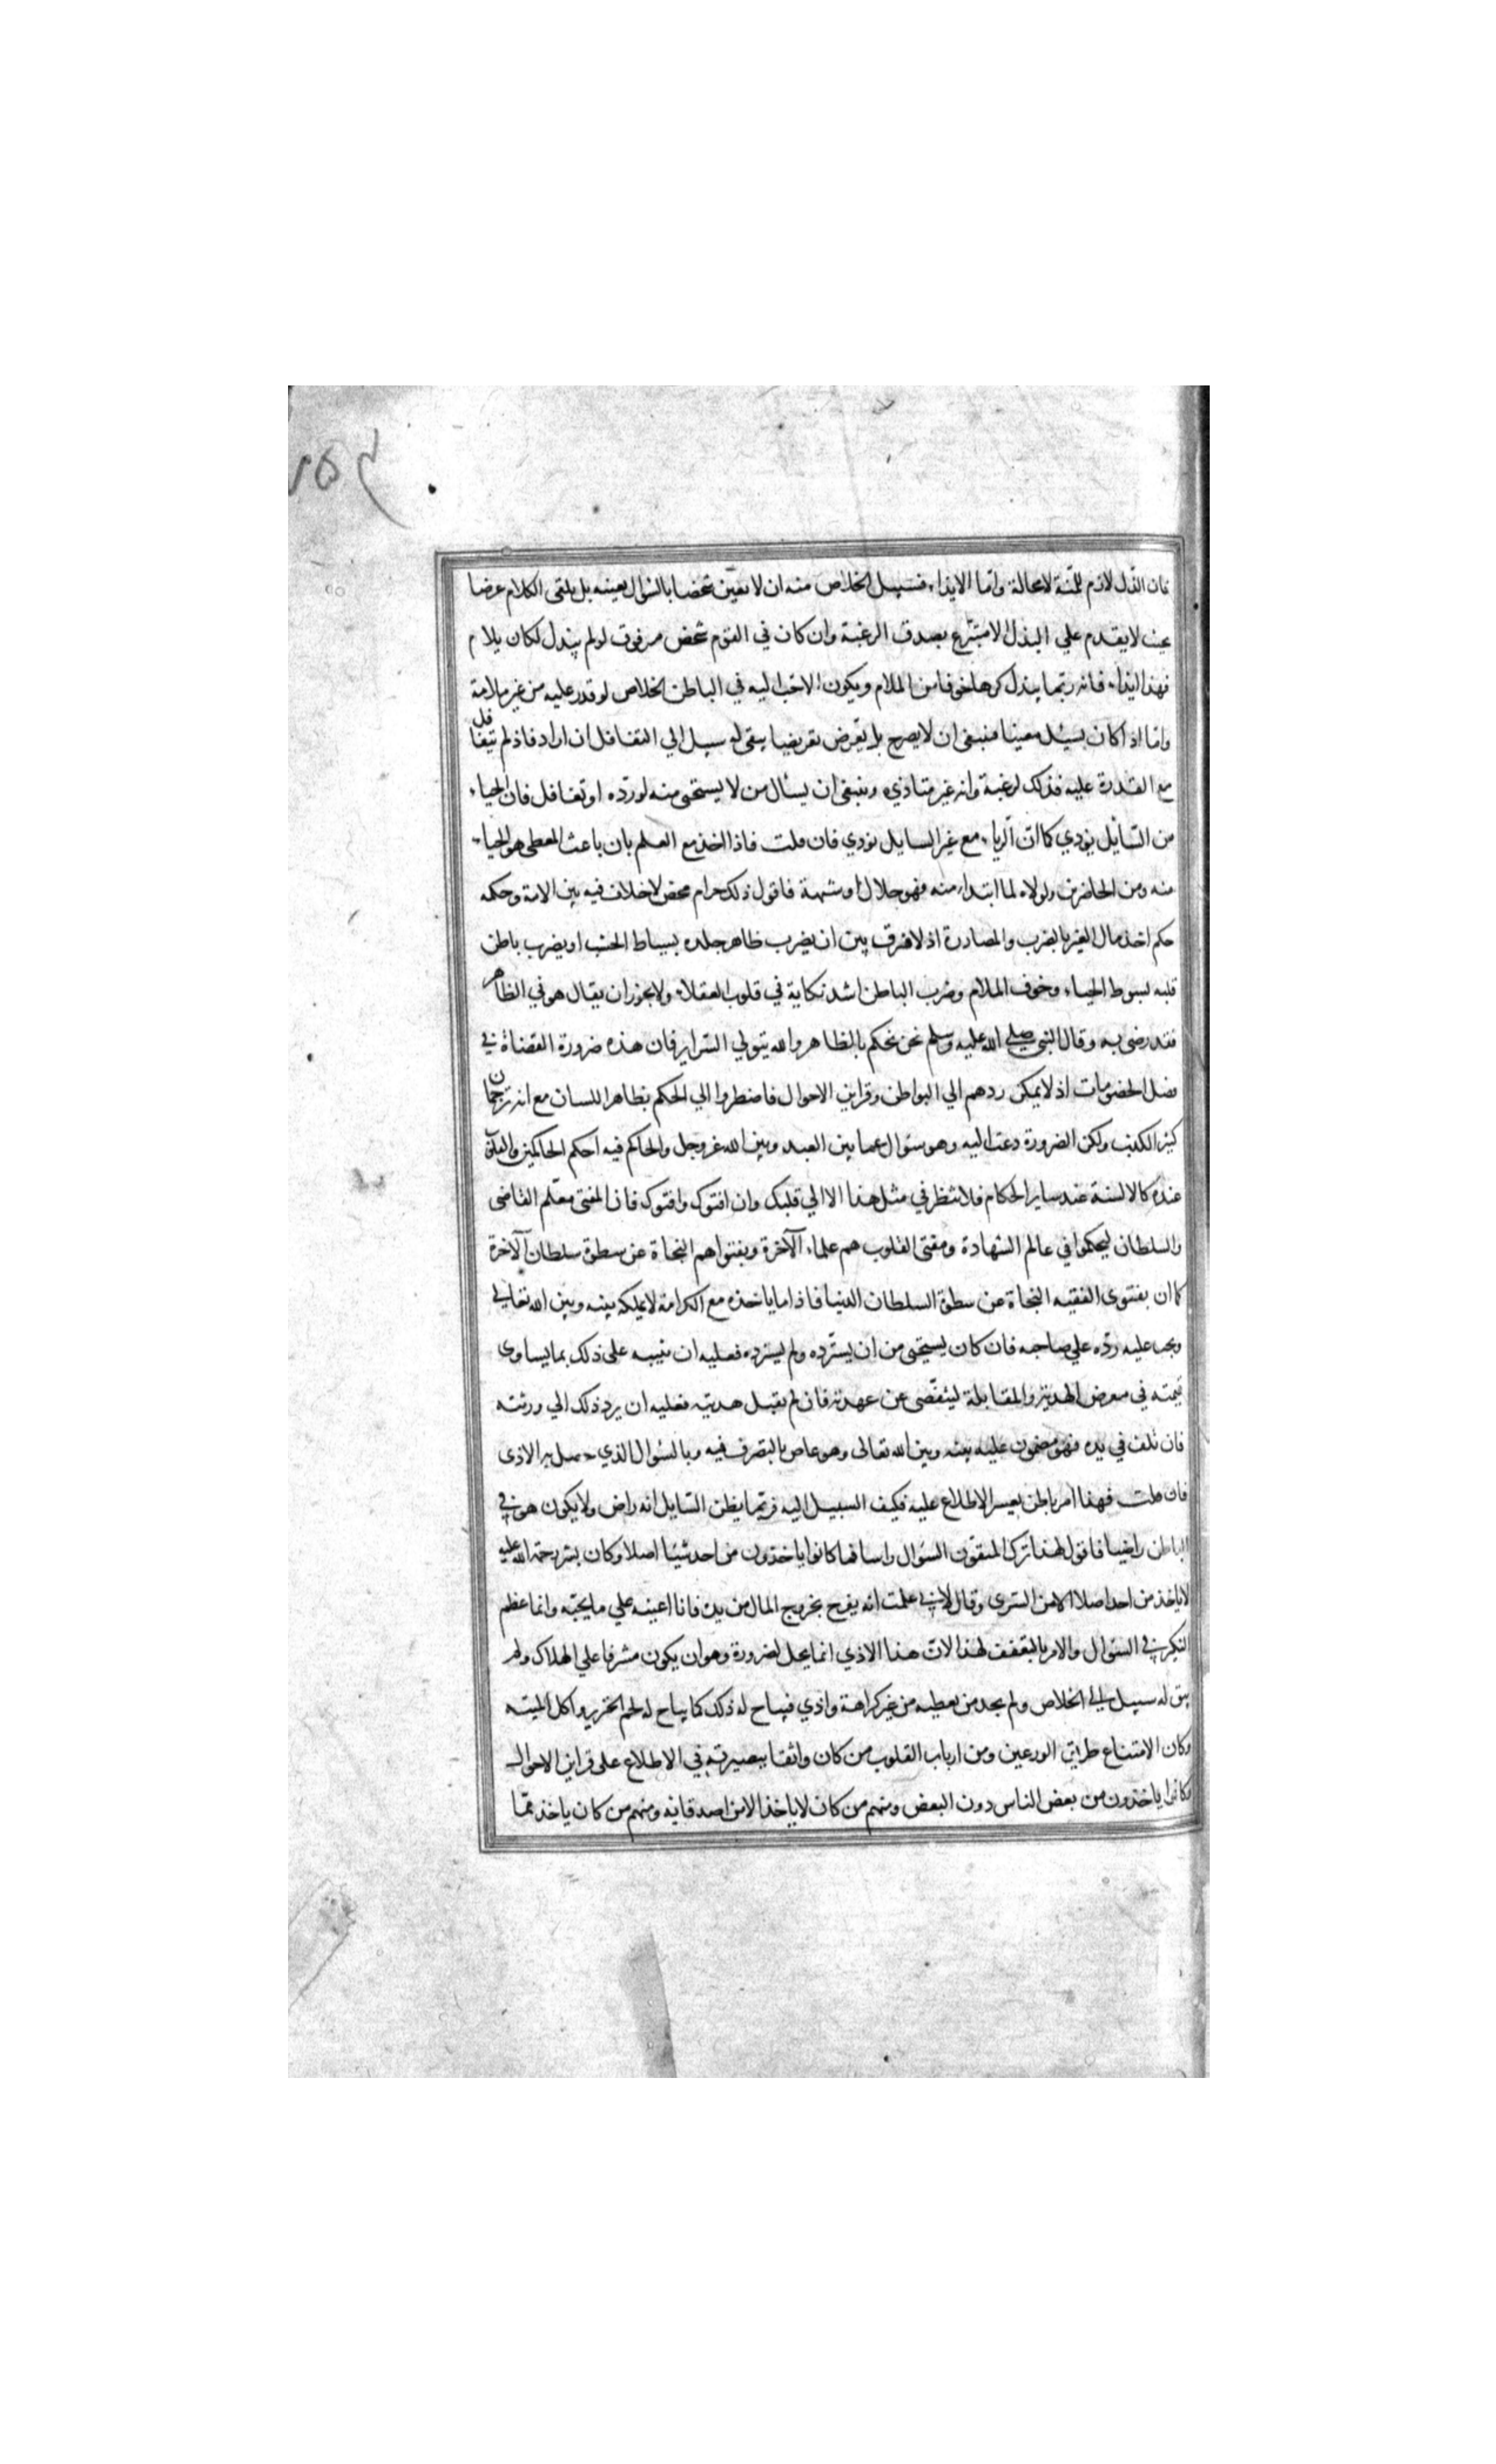 فان الذل لازم للمنة لا محالة واما الايذاء فسبيل الخلاص منه ان لا يعين شخصا بالسؤال بعينه بل يلقى الكلام عرضا
بحيث لا يقدم علي البذل الا متبرع بصدق الرغبة وان كان في القوم شخص مرموق لو لم يبذل لكان يلام
فهذا ايذاء فانه ربما يبذل كرها خوفا من الملام ويكون الاحب اليه في الباطن الخلاص لو قدر عليه من غير ملامة
واما اذا كان يسئل معينا فينبغى ان لا يصرح بل يعرض تعريضا يبقى له سبيل الي التغافل ان اراد فاذ لم يتغافل
مع القدرة عليه فذلك لرغبة وانه غير متاذي وينبغى ان يسأل من لا يستحى منه لو رده او تغافل فان الحياء
من السائل يؤدي كما ان الرياء مع غير السايل يؤدي فان قلت فاذا اخذ مع العلم بان باعث المعطى هو الحياء
منه ومن الحاضرين ولولاه لما ابتداء منه فهو حلال او شبهة فاقول ذلك حرام محض لا خلاف فيه بين الامة وحكمه
حكم اخذ مال الغير بالضرب والمصادرة اذ لا فرق بين ان يضرب ظاهر جلده بسياط الخشب او يضرب باطن
قلبه بسوط الحياء وخوف الملام وضرب الباطن اشد نكاية في قلوب العقلاء ولا يجوز ان يقال هو في الظاهر
فقد رضى به وقال النبى صلي الله عليه وسلم نحن نحكم بالظاهر والله يتولي السراير فان هذه ضرورة القضاة في
فصل الخصومات اذ لا يمكن ردهم الي البواطن وقراين الاحوال فاضطروا الي الحكم بظاهر اللسان مع انه ترجمان
كثير الكذب ولكن الضرورة دعت اليه وهو سؤال عما بين العبد وبين الله عز وجل والحاكم فيه احكم الحاكمين والقلوب
عنده كالالسنة عند ساير الحكام فلا تنظر في مثل هذا الا الي قلبك وان افتوك وافتوك فان المفتى معلم القاضى
والسلطان ليحكموا في عالم الشهادة ومفتى القلوب هم علماء الآخرة وبفتواهم النجاة عن سطوة سلطان الآخرة
كما ان بفتوى الفقيه النجاة عن سطوة السلطان الدنيا فاذا ما ياخذه مع الكراهة لا يملكه بينه وبين الله تعالي
ويجب عليه رده علي صاحبه فان كان يستحى من ان يسترده ولم يسترده فعليه ان يثيبه على ذلك بما يساوى
قيمته في معرض الهدية والمقابلة ليتفصى عن عهدته فان لم يقبل هديته فعليه ان يرد ذلك الي ورثته
فان تلف في يده فهو مضمون عليه بينه وبين الله تعالى وهو عاص بالتصرف فيه وبالسؤال الذي حصل به الاذى
فان قلت فهذا امر باطن يعسر الاطلاع عليه فكيف السبيل اليه فربما يظن السايل انه راض ولا يكون هو في
الباطن راضيا فاقول لهذا ترك المتقون السؤال راسا فما كانوا ياخذون من احد شيئا اصلا وكان بشر رحمة الله عليه
لا ياخذ من احد اصلا الا من السرى وقال لانى علمت انه يفرح بخروج المال من يده فانا اعينه علي ما يحبه وانما عظم
النكير في السؤال والامر بالتعفف لهذا لان هذا الاذي انما يحل لضرورة وهو ان يكون مشرفا علي الهلاك ولم
يبق له سبيل الي الخلاص ولم يجد من يعطيه من غير كراهة واذي فيباح له ذلك كما يباح له لحم الخنزير واكل الميتة
وكان الامتناع طريق الورعين ومن ارباب القلوب من كان واثقا ببصيرته في الاطلاع على قراين الاحوال
فكانوا ياخذون من بعض الناس دون البعض ومنهم من كان لا ياخذ الا من اصدقائه ومنهم من كان ياخذ مما